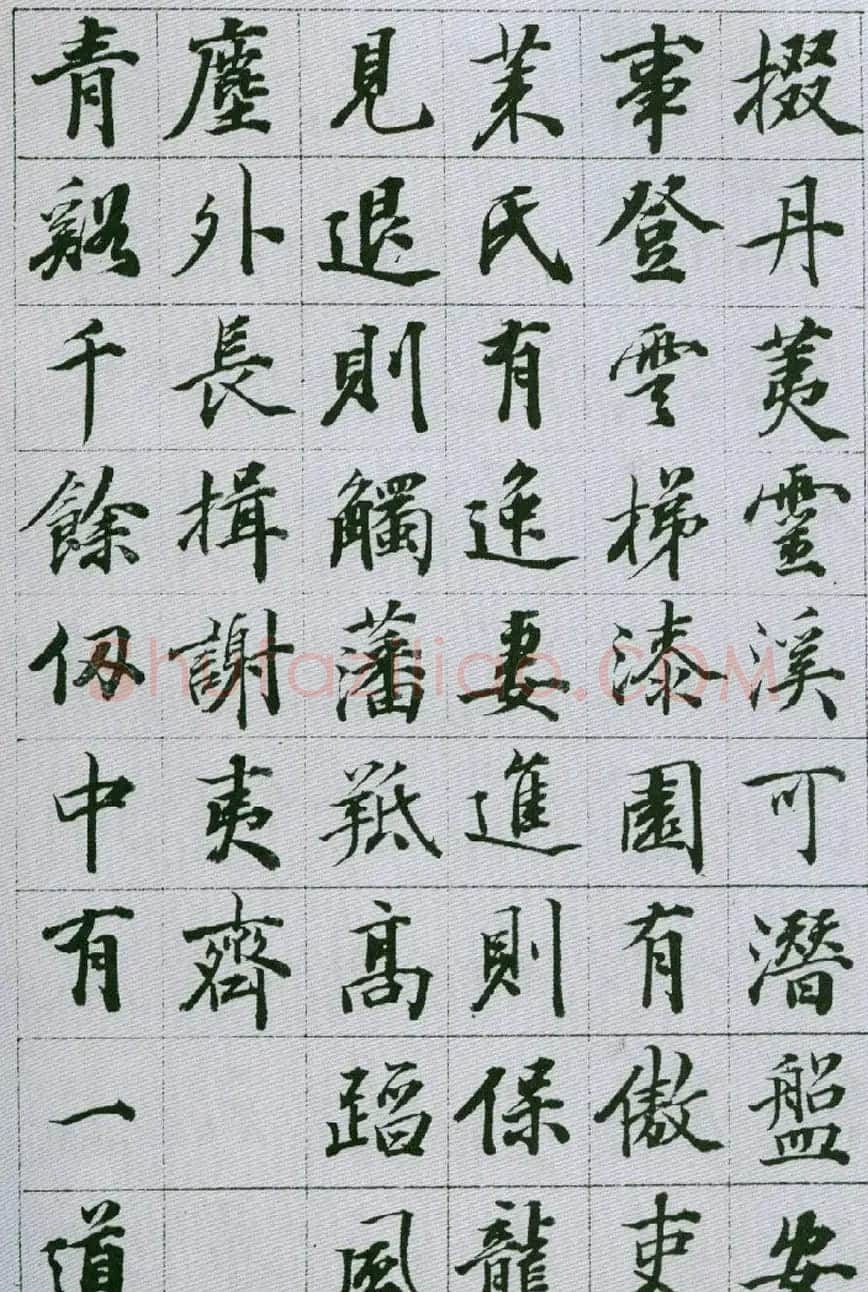 掇丹荑靈溪可潛盤安
事登雲梯漆園有傲吏
萊氏有逸妻進則保龍
見退則觸藩羝高蹈風
塵外長揖謝夷齊
青谿千餘仞中有一道
Shufaziliao.COM